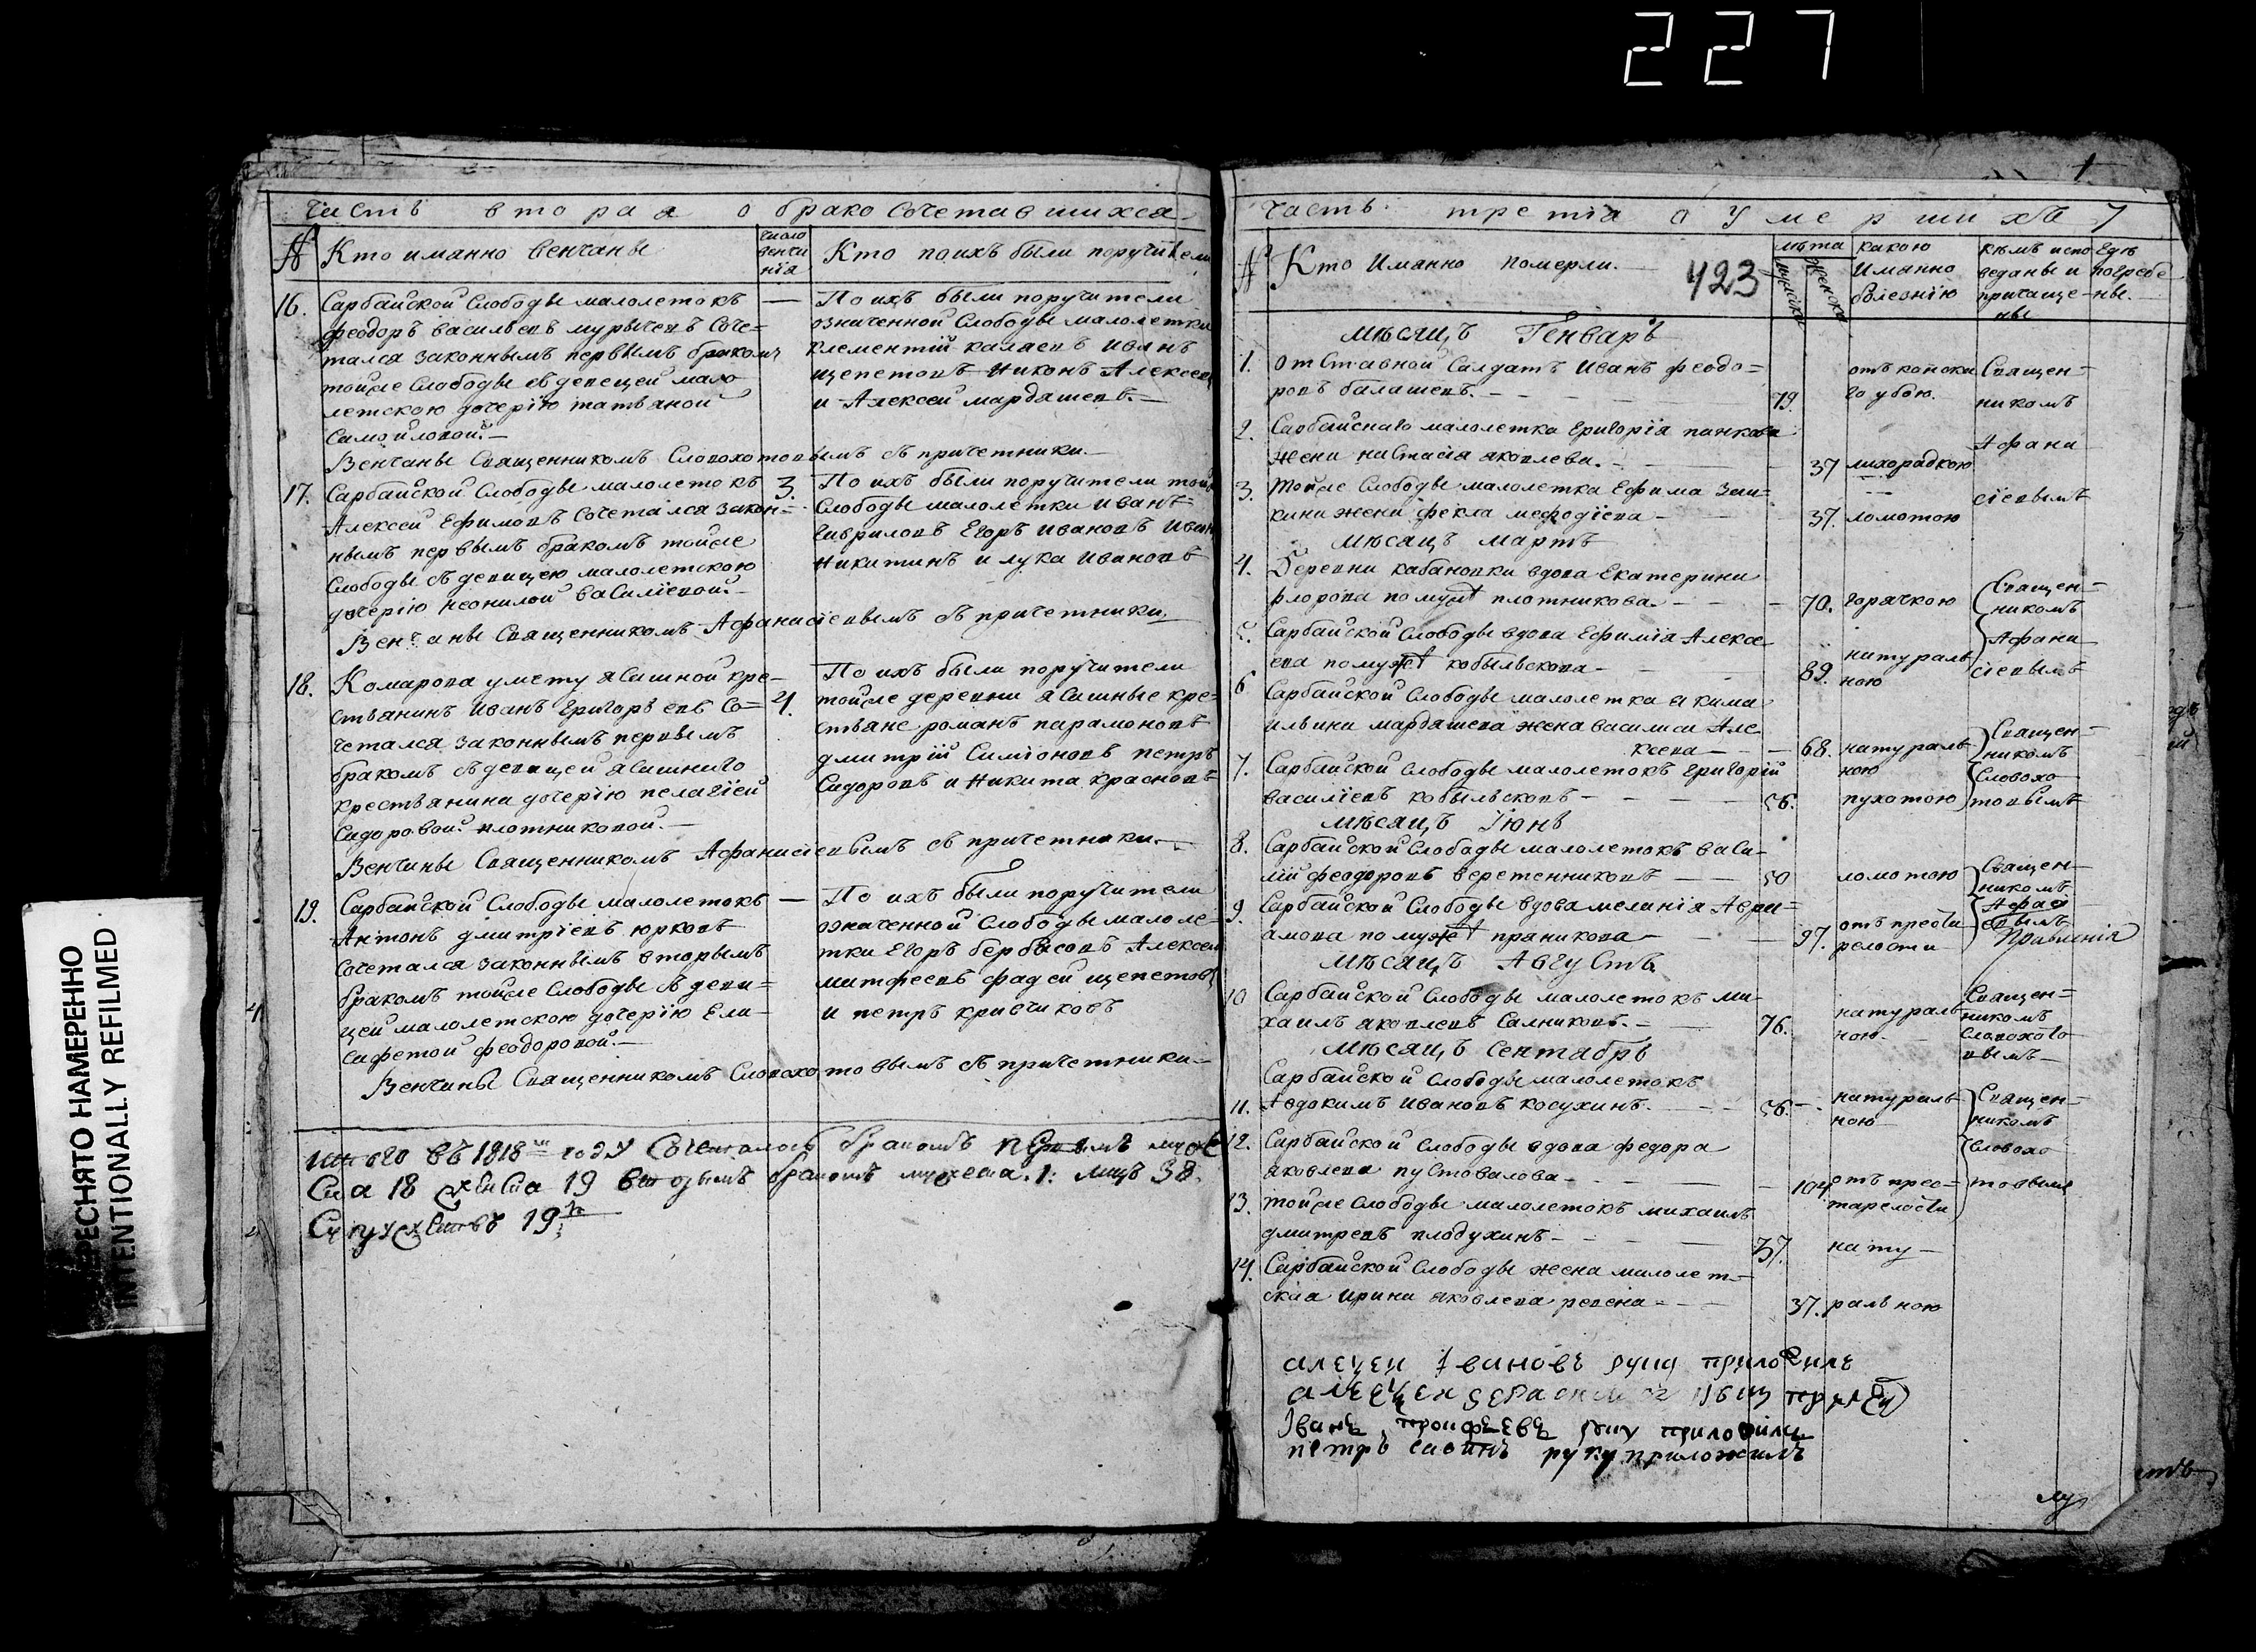 227
ПЕРЕСНЯТО НАМЕРЕННО
INTENTIONALLY REFILMED
часть вторая о брако сочетавшихся
№
Кто иманно венчаны
число венчания
Кто по ихъ были поручители
16. Сарбайской Слободы малолетокъ
феодоръ васильевъ мурычевъ Соче=
тался законнымъ первымъ бракомъ
тойже Слободы съ девецей мало
летскою дочерїю татьяной
Самойловой.—
По ихъ были поручители
означенной Слободы малолетки
клементїй калаевъ иванъ
щепетовъ Никонъ Алексеевъ
и Алексей мардашевъ.—
Венчаны Священникомъ Словохотовымъ съ причетники.—
17. Сарбайской Слободы малолетокъ
Алексей Ефимовъ Сочетался закон=
нымъ первымъ бракомъ тойже
Слободы съ девицею малолетскою
дочерїю неонилой васильевой.—
3.
По ихъ были поручители тойже
Слободы малолетки иванъ
Гавриловъ Егоръ ивановъ иванъ
Никитинъ и лука ивановъ
Венчаны Священникомъ Афанасїевымъ съ причетники
18. Комарова умету ясашной кре-
стьянинъ иванъ григорьевъ Со=
четался законнымъ первымъ
бракомъ съ девицей ясашнаго
крестьянина дочерїю пелагїей
Сидоровой плотниковой.—
4.
По ихъ были поручители
тойже деревни ясашные кре=
стьяне романъ парамоновъ
дмитрїй Симїоновъ петръ
Сидоровъ и Никита красновъ
Венчаны Священникомъ Афанасїевымъ съ причетники.—
19. Сарбайской Слободы малолетокъ
Антонъ дмитрїевъ юрковъ
Сочетался законнымъ вторымъ
бракомъ тойже Слободы съ деви=
цей малолетскою дочерїю Ели-
сафетой феодоровой.—
По ихъ были поручители
означенной Слободы малоле=
тки Егоръ бербасовъ Алексей
матфеевъ фадей щепетовъ
и петръ кривчиковъ
Венчаны Священникомъ Словохотовымъ съ причетники—
итого въ 1818 году Сочеталось бракомъ первымъ
18 19 бракомъ 1: лицъ 38.
Супружествъ 19
часть третїа о умершихъ
№
Кто Иманно померли.—
423
лѣта
мужска
женска
какою Иманно болезнїю
кѣмъ исповеданы и причащены
Гдѣ погребены.
мѣсяцъ Генварь
1. отставной Салдатъ иванъ феодо=
ровъ балашевъ.— 79. отъ конскаго убою. Священникомъ
2. Сарбайскаго малолетка григорїя панкова
жена настасїя яковлева.— 37 лихорадкою Афана
3. тойже Слободы малолетка Ефима Заи=
кина жена фекла мефодїева— 37. ломотою сїевымъ
мѣсяцъ мартъ
4. Деревни кабановки вдова Екатерина
флорова по мужѣ плотникова— 70. горячкою Священникомъ
5. Сарбайской Слободы вдова Ефимїя Алексе
ева по мужѣ кобыльскова— 89. натуральною Афанасїевымъ
6 Сарбайской Слободы малолетка якима
ильина мардашева жена василиса Але
ксева— 68. натуральною Священникомъ
7. Сарбайской Слободы малолетокъ григорїй
василїевъ кобыльсковъ— 56. пухотою Словохотовымъ
мѣсяцъ Iюнь
8. Сарбайской Слободы малолетокъ васи-
лїй феодоровъ веретенниковъ— 50 ломотою Священникомъ
9. Сарбайской Слободы вдова меланїя Авра=
амова по мужѣ пряникова— 97. отъ престарелости
мѣсяцъ Августъ
10 Сарбайской Слободы малолетокъ ми-
хаилъ яковлевъ Салниковъ.— 76. натуральною Священникомъ Словохотовымъ
мѣсяцъ Сентябрь
Сарбайской Слободы малолетокъ
11. Авдокимъ ивановъ косухинъ.— 56. натуральною Священникомъ
12. Сарбайской Слободы вдова федора
яковлева пустовалова— 104 отъ престарелости Словохотовымъ
13. тойже Слободы малолетокъ михаилъ
дмитревъ плодухинъ— 37. нату—
14. Сарбайской Слободы жена малолет—
скаа ирина яковлева ревена— 37. ральною
алекѣи Iвановъ руку приложилъ
Iванъ руку приложилъ
петръ савинъ руку приложилъ